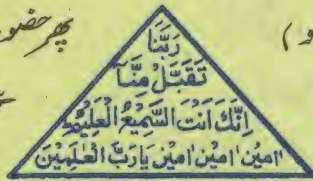 پھر حضور
رَبَّنَا
تَقَبَّلْ مِنَّا
اِنَّكَ اَنْتَ السَّمِيْعُ الْعَلِيْمُ
اٰمِيْن اٰمِيْن اٰمِيْن يَارَبَّ الْعٰلَمِيْنَ